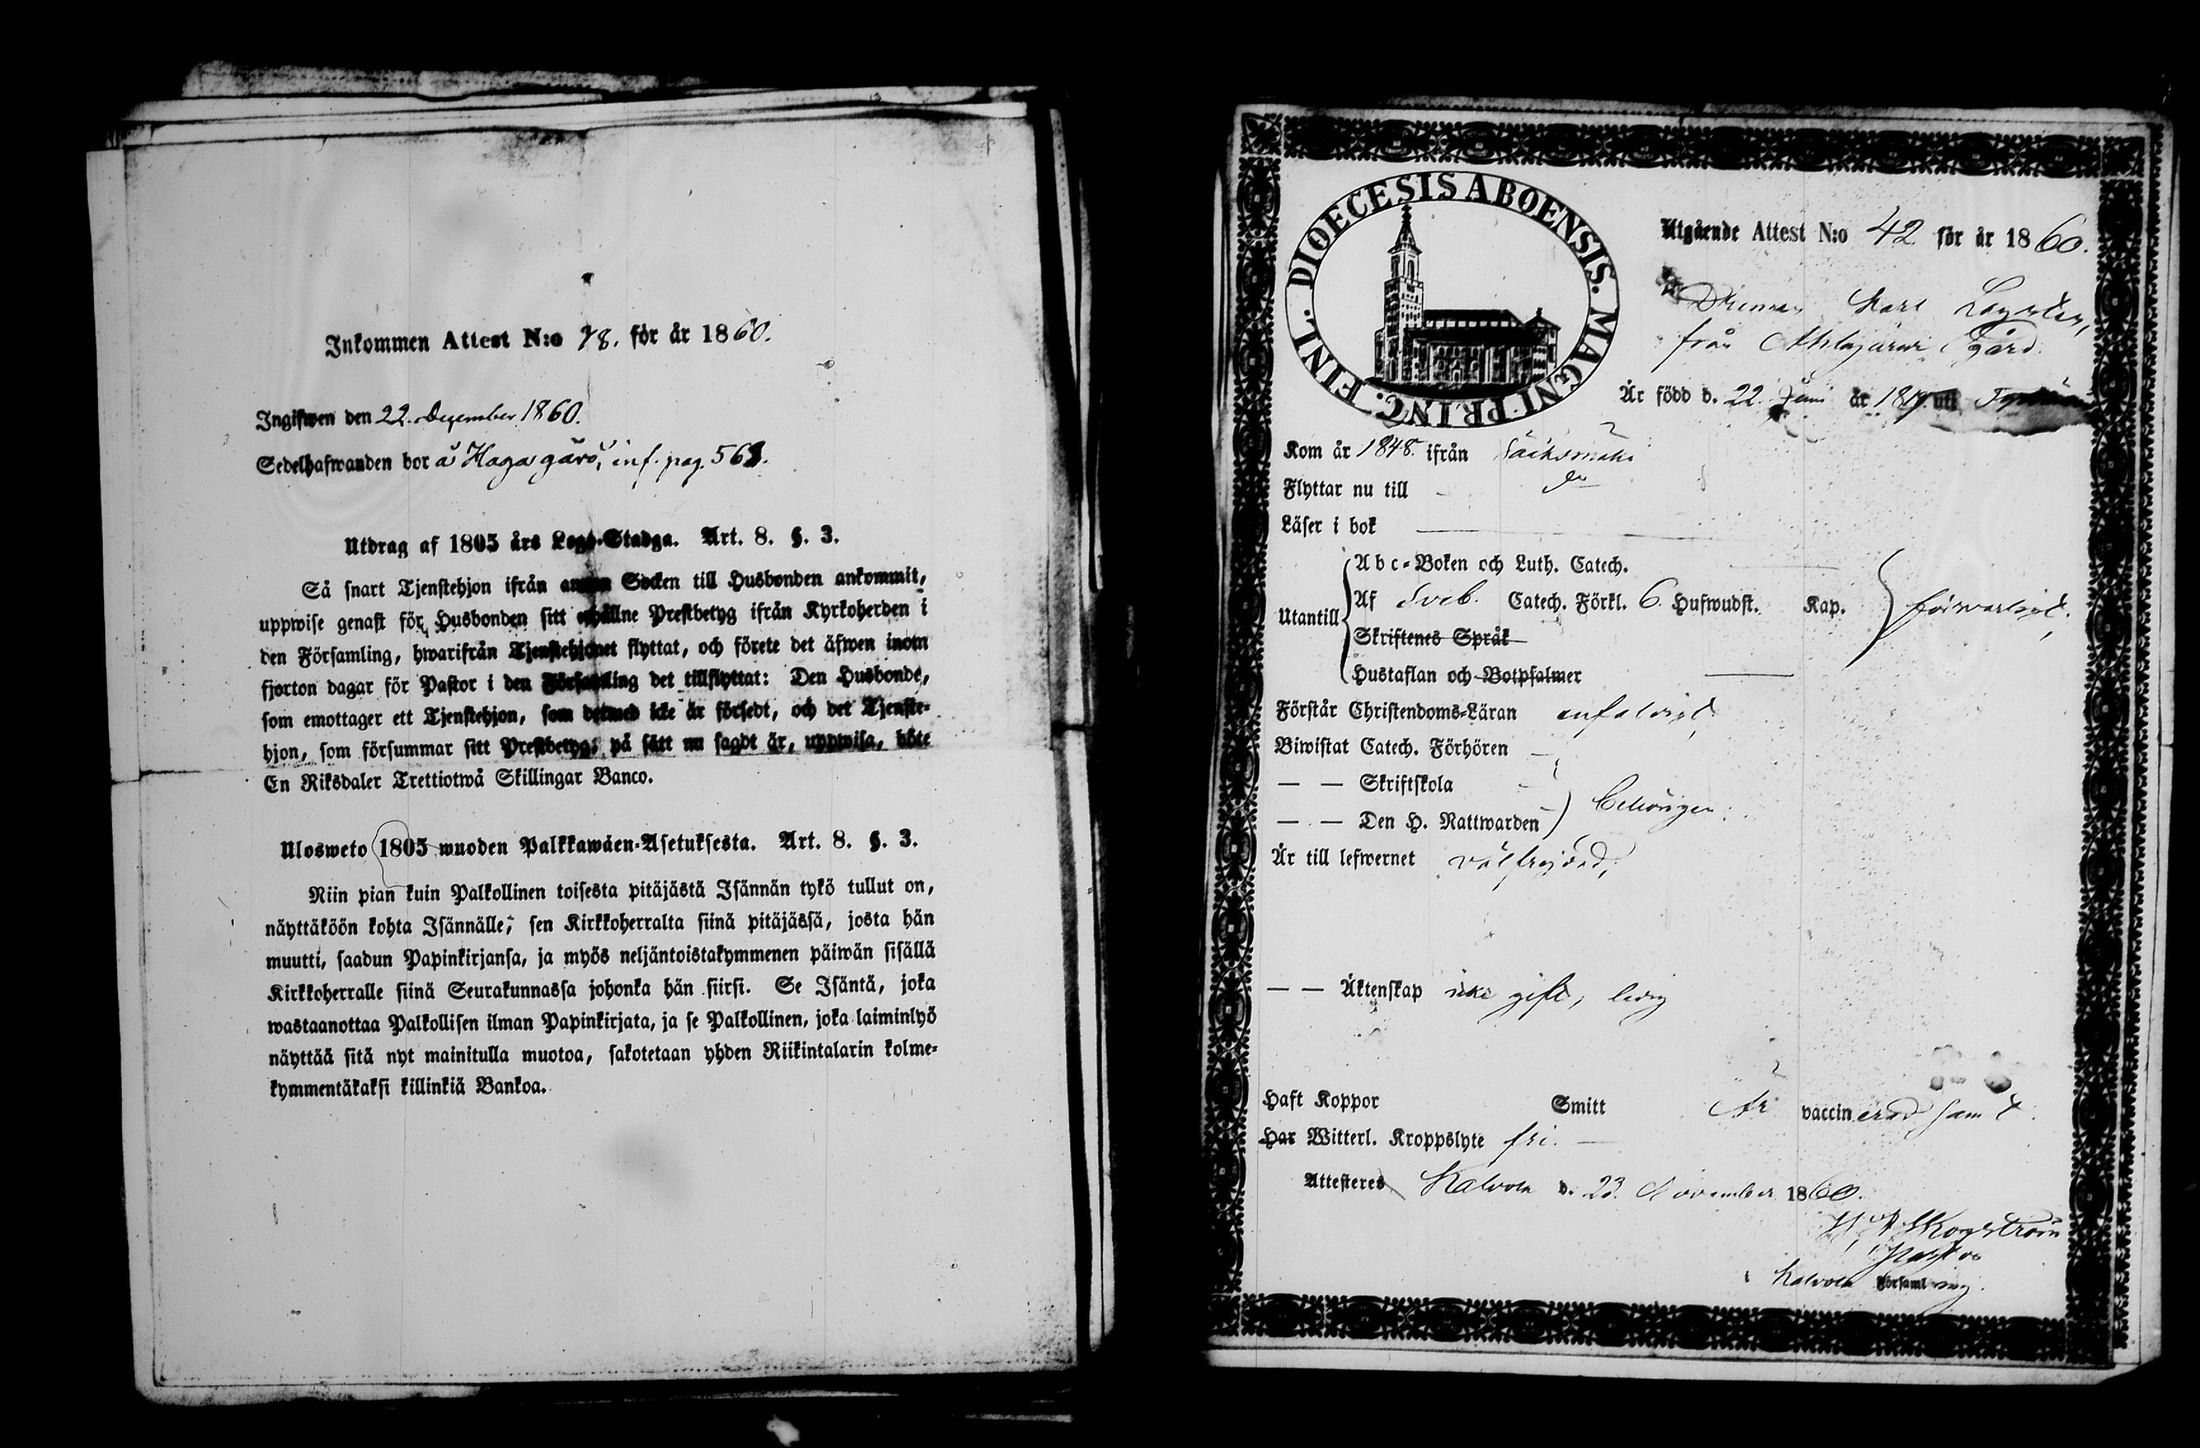 Inkommen Attest N:o 78. för år 1860.
Ingifwen den 22. December 1860.
Sedelhafwanden bor å Haga gård, inf. pag. 563.
Utdrag af 1805 års Lego-Stadga. Art. 8. §. 3.
Så snart Tjenstehjon ifrån annan Socken till Husbonden ankommit,
uppwise genast för Husbonden sitt erhållne Prestbetyg ifrån Kyrkoherden i
den Församling, hwarifrån Tjenstehjonet flyttat, och förete det äfwen inom
fjorton dagar för Pastor i den Församling det tillflyttat: Den Husbonde,
som emottager ett Tjenstehjon, som dermed icke är försedt, och det Tjenste-
hjon, som försummar sitt Prestbetyg, på sätt nu sagdt är, uppwisa, böte
En Riksdaler Trettiotwå Skillingar Banco.
Ulosweto 1805 wuoden Palkkawäen-Asetuksesta. Art. 8. §. 3.
Niin pian kuin Palkollinen toisesta pitäjästä Isännän tykö tullut on,
näyttäköön kohta Isännälle, sen Kirkkoherralta siinä pitäjässä, josta hän
muutti, saadun Papinkirjansa, ja myös neljäntoistakymmenen päiwän sisällä
Kirkkoherralle siinä Seurakunnassa johonka hän siirsi. Se Isäntä, joka
wastaanottaa Palkollisen ilman Papinkirjata, ja se Palkollinen, joka laiminlyö
näyttää sitä nyt mainitulla muotoa, sakotetaan yhden Riikintalarin kolme-
kymmentäkaksi killinkiä Bankoa.
DIOECESIS ABOENSIS. MAGNI PRINC. FINL.
Utgående Attest N:o 42 för år 1860.
Karl
från gård.
Är född d. 22 Juni år 18 uti
Kom år 1848. ifrån Sääksmäki
Flyttar nu till
Läser i bok
Abc-Boken och Luth. Catech.
Utantill Af Sveb. Catech. Förkl. 6 Hufwudst. Kap. försvarligt.
Skriftenes Språk
Hustaflan och Botpsalmer
Förstår Christendoms-Läran enfaldigt
Biwistat Catech. Förhören
— — Skriftskola
— — Den H. Nattwarden behörigen.
Är till lefwernet välfrejdad,
— — Äktenskap icke gift, ledig
Haft Koppor Smitt Är vaccinerad samt
Har Witterl. Kroppslyte fri.
Attesteres, Kalvola d. 23. November 1860.
Skogström
Pastor
i Kalvola Församling.